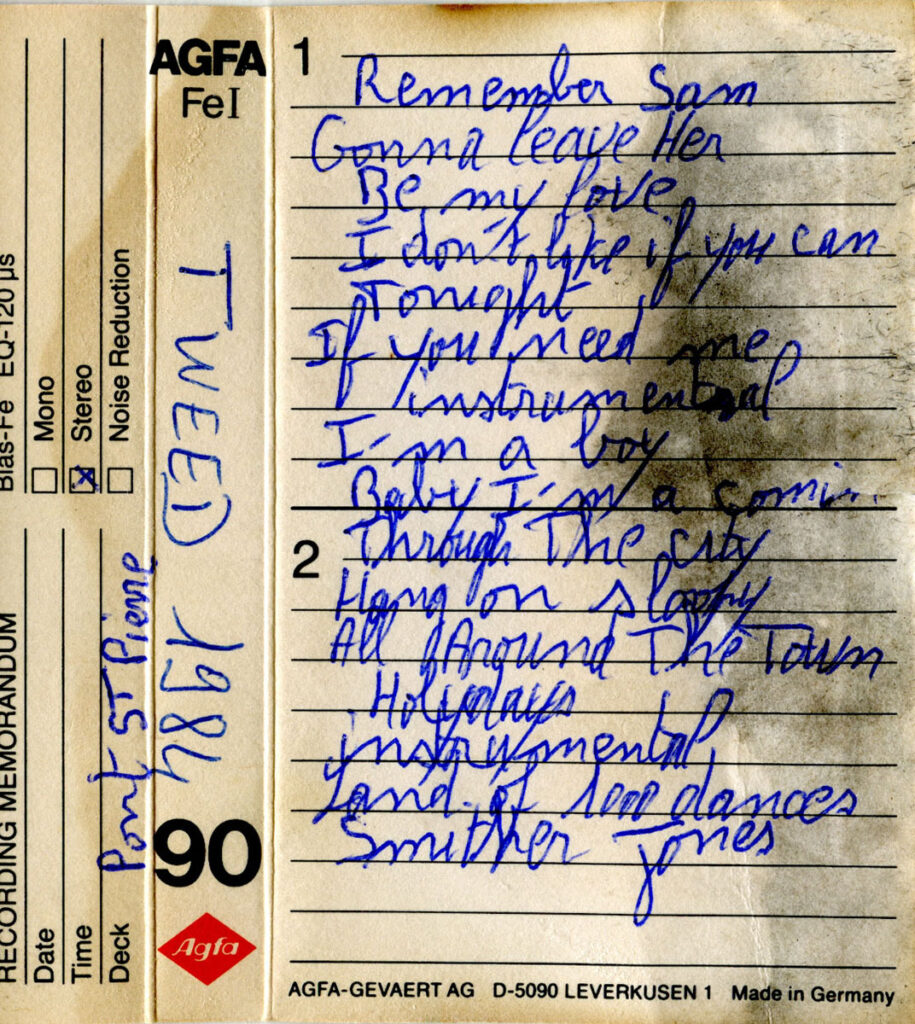 Bias-Fe EQ-120 µs
Mono
Stereo
Noise Reduction
RECORDING MEMORANDUM
Date
Time
Deck
Pont ST Pierre
AGFA
FeI
TWEED 1984
90
Agfa
1
Remember Sam
Gonna leave Her
Be my love
I don't like if you can
Tonight
If you need me
instrumental
I'm a boy
Baby I'm a comin..
2
Through The city
Hang on sloopy
All Around The Town
Holydays
instrumental
Land of 1000 dances
Smither Jones
AGFA-GEVAERT AG D-5090 LEVERKUSEN 1 Made in Germany